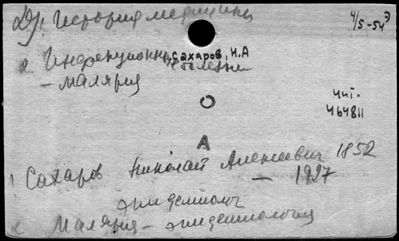 Др. История медицины
4/5-54³
2 Инфекционные болезни
Сахаров, Н.А
- Малярия
Чит.
464811
А
1 Сахаров Николай Алексеевич 1852
- 1927
эпидемиолог
2 Малярия - эпидемиология